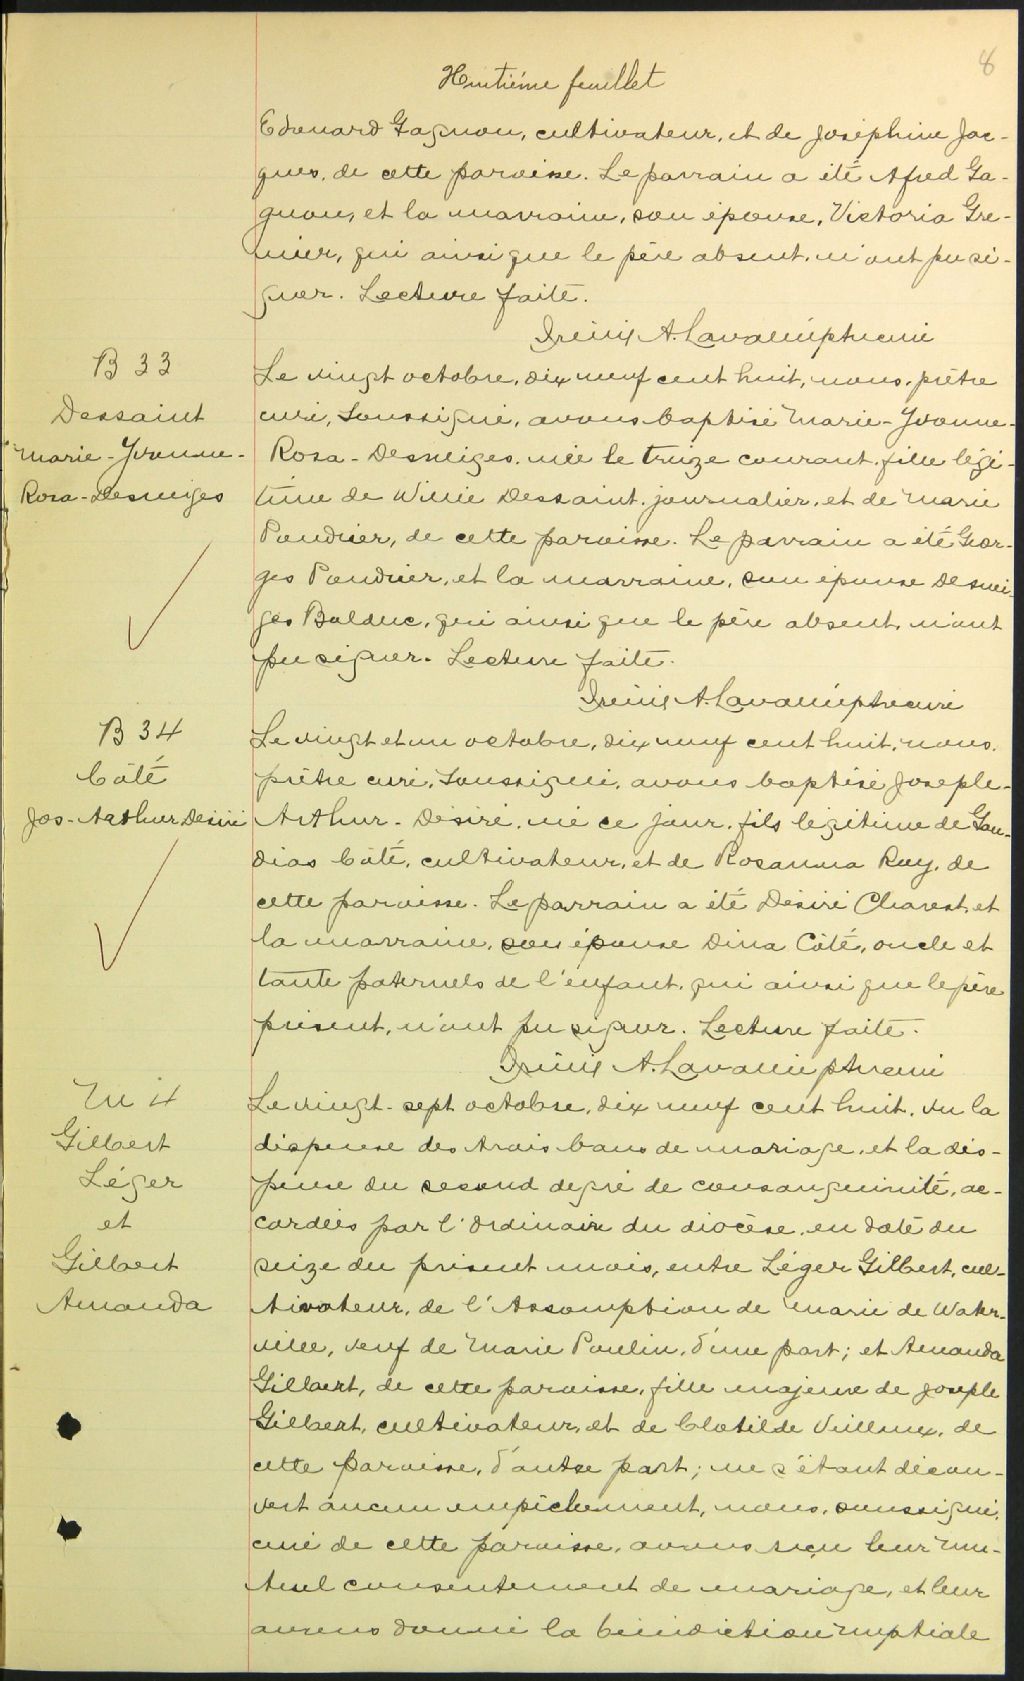 8
Huitième feuillet
Edouard Gagnon, cultivateur, et de Joséphine Jac-
ques, de cette paroisse. Le parrain a été Afred Ga-
gnon, et la marraine, son épouse, Victoria Gre-
nier, qui ainsi que le père absent, n'ont pu si-
gner. Lecture faite.
A. Lavallée ptre curé
B 33
Dessaint
Marie-Yvonne-
Rosa-Desneiges
Le vingt octobre, dix neuf cent huit, nous, prêtre
curé, soussigné, avons baptisé Marie-Yvonne-
Rosa-Desneiges, née le treize courant, fille légi-
time de Willie Dessaint, journalier, et de Marie
Poudrier, de cette paroisse. Le parrain a été Geor-
ges Poudrier, et la marraine, son épouse Desnei-
ges Bolduc, qui ainsi que le père absent, n'ont
pu signer. Lecture faite.
A. Lavallée ptre curé
B 34
Côté
Jos-Arthur Désiré
Le vingt et un octobre, dix neuf cent huit, nous,
prêtre curé, soussigné, avons baptisé Joseph-
Arthur-Désiré, né ce jour, fils légitime de Gau-
dias Côté, cultivateur, et de Rosanna Roy, de
cette paroisse. Le parrain a été Désiré Charest, et
la marraine, son épouse Dina Côté, oncle et
tante paternels de l'enfant, qui ainsi que le père
présent, n'ont pu signer. Lecture faite.
A. Lavallée ptre curé
M 4
Gilbert
Léger
et
Gilbert
Amanda
Le vingt-sept octobre, dix neuf cent huit, vu la
dispense des trois bans de mariage, et la dis-
pense du second degré de consanguinité, ac-
cordées par l'Ordinaire du diocèse, en date du
seize du présent mois, entre Léger Gilbert, cul-
tivateur, de l'Assomption de Marie de Water-
ville, veuf de Marie Poulin, d'une part; et Amanda
Gilbert, de cette paroisse, fille majeure de Joseph
Gilbert, cultivateur, et de Clotilde Veilleux, de
cette paroisse, d'autre part; ne s'étant décou-
vert aucun empêchement, nous, soussigné,
curé de cette paroisse, avons reçu leur mu-
tuel consentement de mariage, et leur
avons donné la bénédiction nuptiale